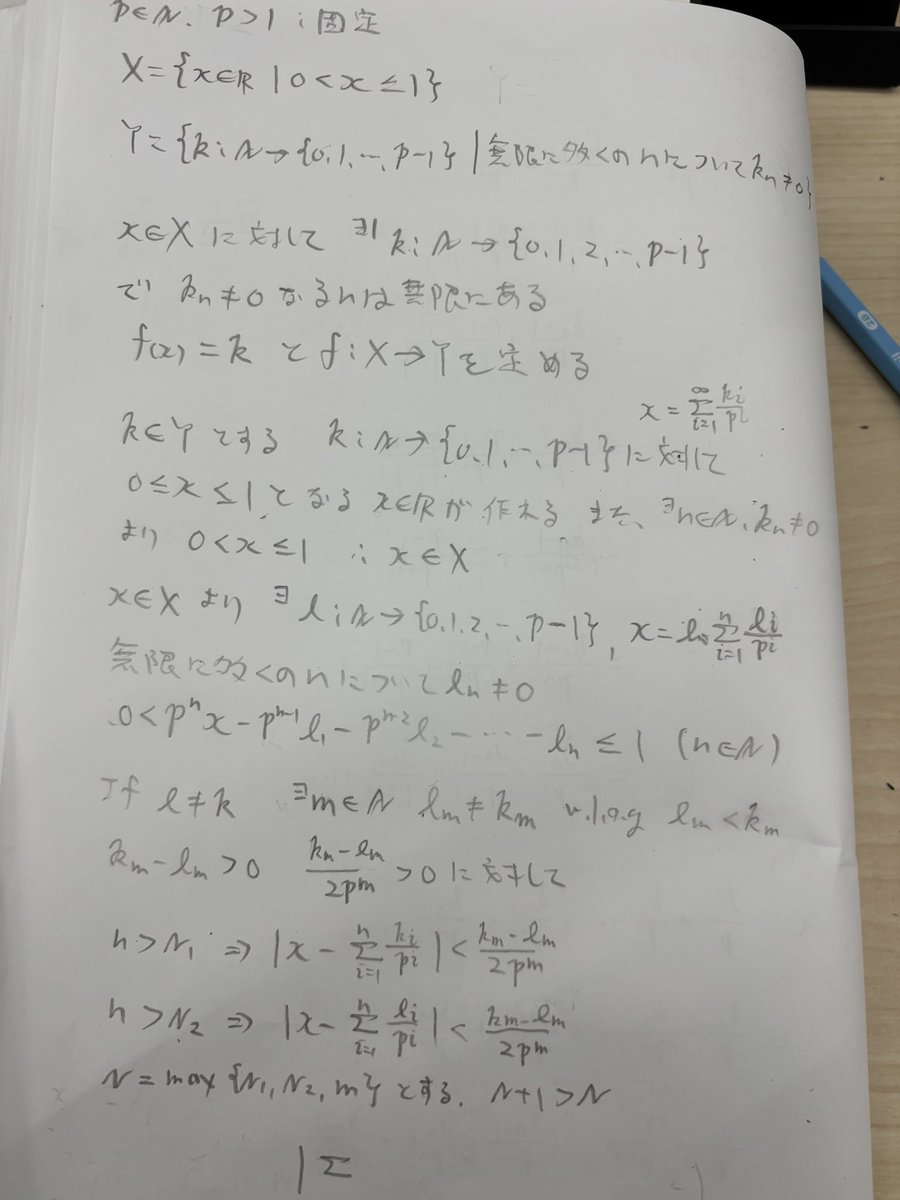 p∈N. p>1 ; 固定
X={x∈R | 0<x≤1}
Y={k:N→{0,1,…,p-1} | 無限に多くのnについてkn≠0}
x∈X に対して ∃1 k:N→{0,1,2,…,p-1}
で kn≠0 なるnは無限にある
f(x)=k と f:X→Yを定める
x=∑_{i=1}^{∞} k_i/p^i
k∈Y とする k:N→{0,1,…,p-1}に対して
0≤x≤1 となる x∈Rが作れる また、∃n∈N, kn≠0
より 0<x≤1 ∴ x∈X
x∈X より ∃ l:N→{0,1,2,…,p-1}, x=∑_{i=1}^{n} l_i/p^i
無限に多くのnについて ln≠0
0<p^n x-p^{n-1}l_1-p^{n-2}l_2-……-l_n≤1 (n∈N)
If l≠k ∃m∈N l_m≠k_m w.l.o.g l_m<k_m
k_m-l_m>0 (k_m-l_m)/2p^m>0 に対して
n>N_1 ⇒ |x-∑_{i=1}^{n} k_i/p^i|<(k_m-l_m)/2p^m
n>N_2 ⇒ |x-∑_{i=1}^{n} l_i/p^i|<(k_m-l_m)/2p^m
N=max{N_1,N_2,m}とする. N+1>N
|∑